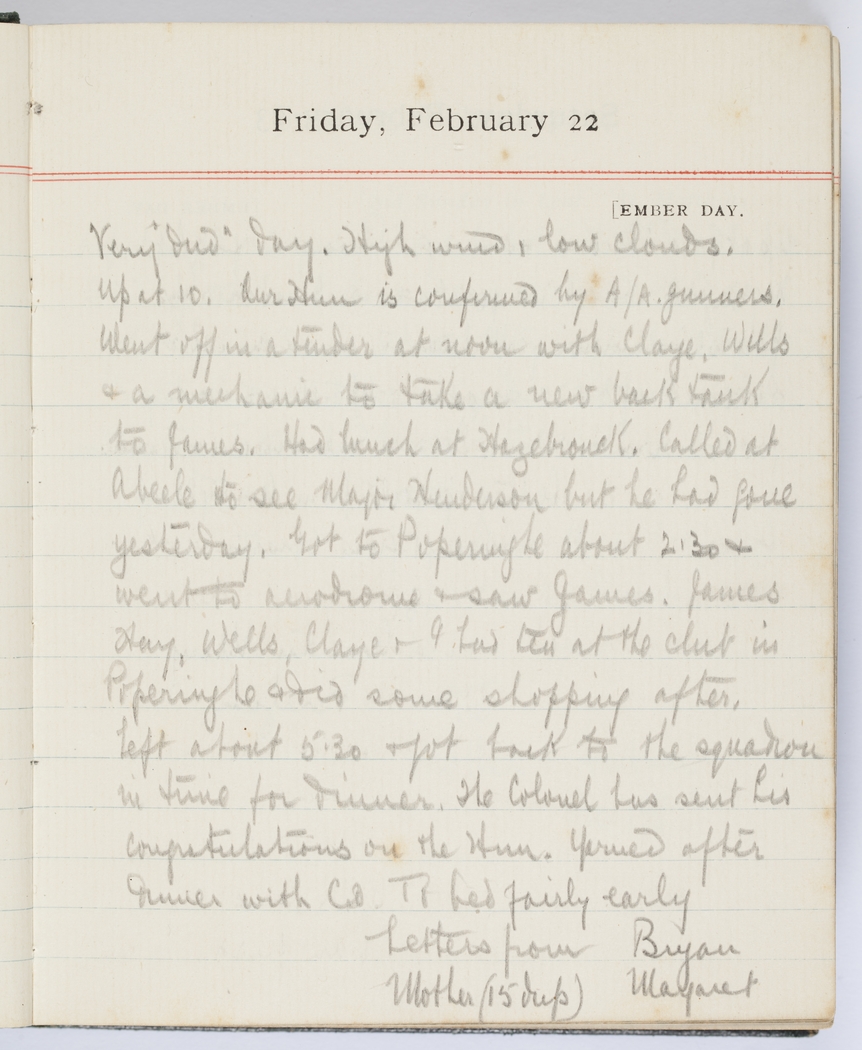 Friday, February 22
[EMBER DAY.
Very "dud" day. High wind, low clouds.
Up at 10. Our Hun is confirmed by A/A. gunners.
Went off in a tender at noon with Claye, Wells
+ a mechanic to take a new back tank
to James. Had lunch at Hazebrouck. Called at
Abeele to see Major Henderson but he had gone
yesterday. Got to Poperinghe about 2.30 +
went to aerodrome + saw James. James
Hay, Wells, Claye + I had tea at the club in
Poperinghe & did some shopping after.
Left about 5.30 + got back to the squadron
in time for dinner. The Colonel has sent his
congratulations on the Hun. Yarned after
dinner with C.O. To bed fairly early
Letters from Bryan
Mother (15 dup) Margaret